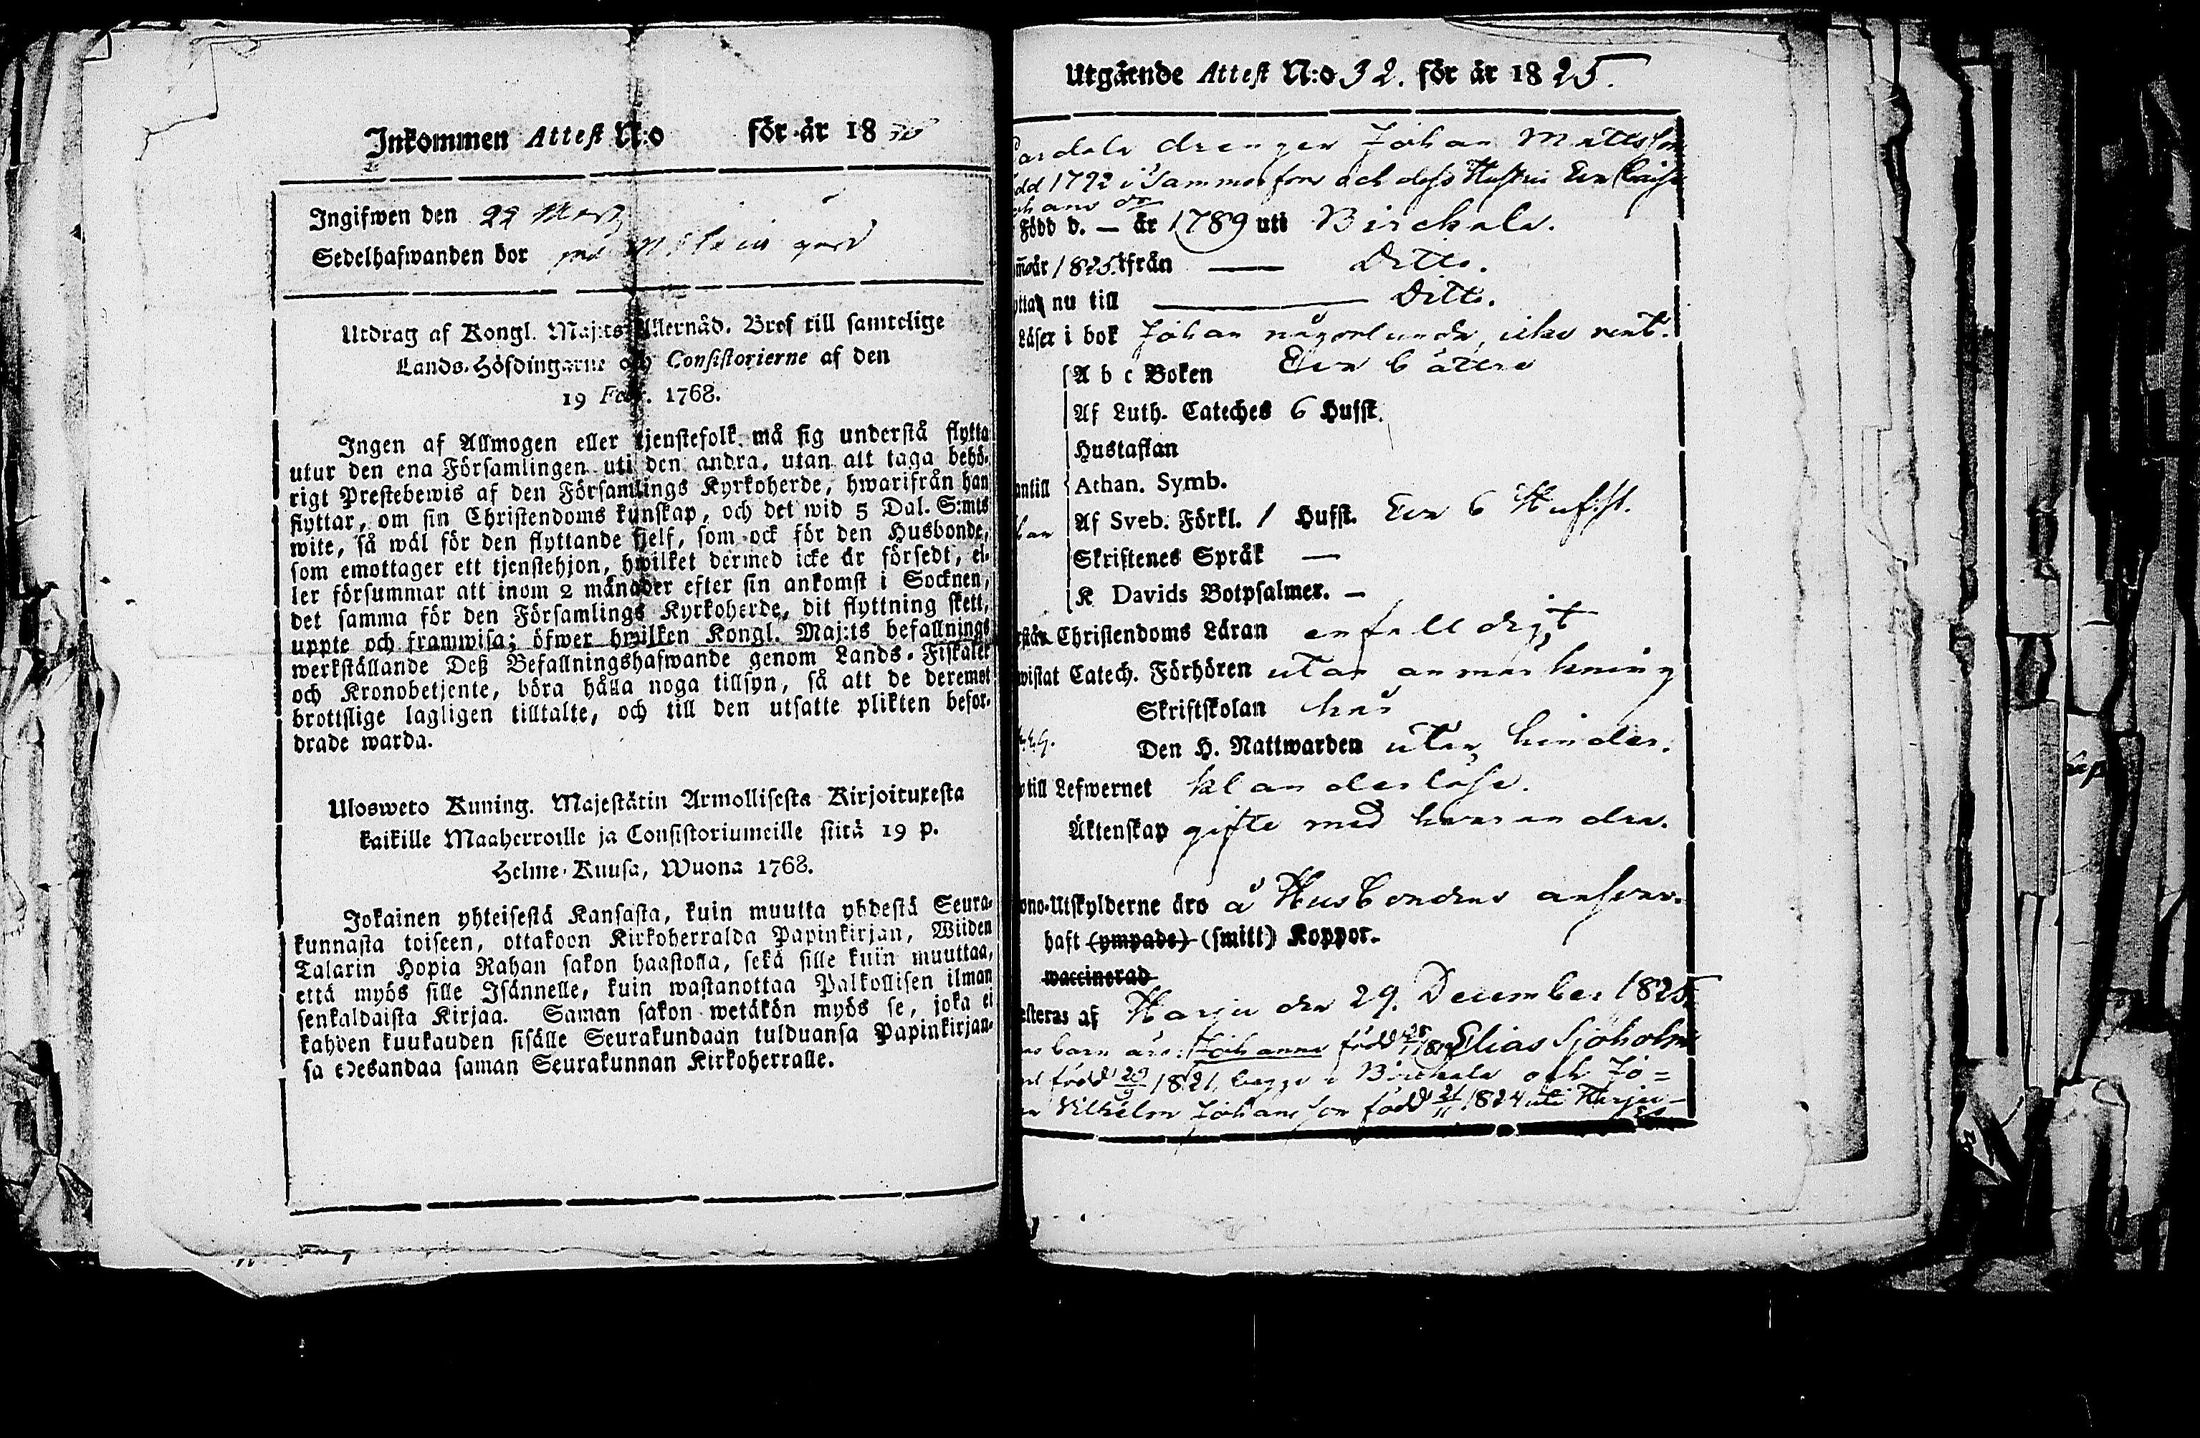 Inkommen Attest N:o för år 18
Ingifwen den 22 Mars
Sedelhafwanden bor på gård
Utdrag af Kongl. Maj:ts Allernåd. Bref till samtelige
Lands-Höfdingarne och Consistorierne af den
19 Febr. 1768.
Ingen af Allmogen eller tjenstefolk må sig understå flytta
utur den ena Församlingen uti den andra, utan att taga behö-
rigt Prestebewis af den Församlings Kyrkoherde, hwarifrån han
flyttar, om sin Christendoms kunskap, och det wid 5 Dal. S:mts
wite, så wäl för den flyttande sjelf, som ock för den Husbonde,
som emottager ett tjenstehjon, hwilket dermed icke är försedt, el-
ler försummar att inom 2 månader efter sin ankomst i Socknen,
det samma för den Församlings Kyrkoherde, dit flyttning skett,
uppte och framwisa; öfwer hwilken Kongl. Maj:ts befallnings
werkställande Deß Befallningshafwande genom Lands-Fiskaler
och Kronobetjente, böra hålla noga tillsyn, så att de deremot
brottslige lagligen tilltalte, och till den utsatte plikten befor-
drade warda.
Ulosweto Kuning. Majestätin Armollisesta Kirjoituxesta
kaikille Maaherroille ja Consistoriumeille siitä 19 p.
Helme-Kuusa, Wuona 1768.
Jokainen yhteisestä Kansasta, kuin muutta yhdestä Seura-
kunnasta toiseen, ottakoon Kirkoherralda Papinkirjan, Wiiden
Talarin Hopia Rahan sakon haastolla, sekä sille kuin muuttaa,
että myös sille Isännelle, kuin wastanottaa Palkollisen ilman
senkaldaista Kirjaa. Saman sakon wetäkön myös se, joka ei
kahden kuukauden sisälle Seurakundaan tulduansa Papinkirjan-
sa edesandaa saman Seurakunnan Kirkoherralle.
Utgående Attest N:o 32. för år 1825.
drengen Johan Mattsson
född 1792 i Tammerfors och dess Hustru Eva Caisa
Johans dr
Född d. — år 1789 uti Birckala.
år 1825 ifrån — Ditto.
nu till — Ditto.
Läser i bok Johan någorlunda, icke rent.
A b c Boken Eva bättre
Af Luth. Cateches 6 Hufst.
Hustaflan
antill Athan. Symb.
Af Sveb. Förkl. 1 Hufst. Eva 6 Hufst.
Skriftenes Språk —
K Davids Botpsalmer. —
Christendoms Läran enfalldigt
wistat Catech. Förhören utan anmärkning
Skriftskolan här
Den H. Nattwarden utan hinder.
till Lefwernet klanderlöse.
Äktenskap gifte med hvarandra.
ono-Utskylderne äro å Husbondens answar.
haft (ympade) (smitt) Koppor.
waccinerad
esteras af Harju den 29. December 1825.
barn äro: Johanna född Elias Sjöholm
född 29/9 1821, begge i Birckala och Jo=
Vilhelm Johansson född 1824 uti Harju